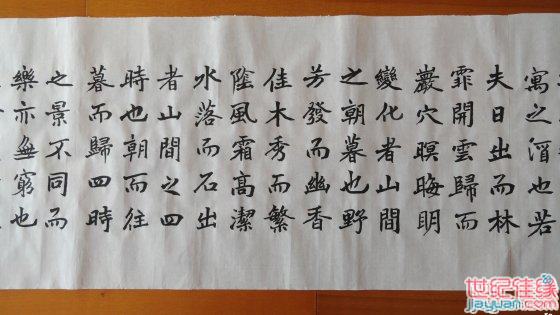 寓之酒也若
夫日出而林
霏開雲歸而
巖穴暝晦眀
變化者山間
之朝暮也野
芳發而幽香
佳木秀而繁
隂風霜高潔
水落而石出
者山間之四
時也朝而往
暮而歸四時
之景不同而
樂亦無窮也
世纪佳缘
jiayuan.com